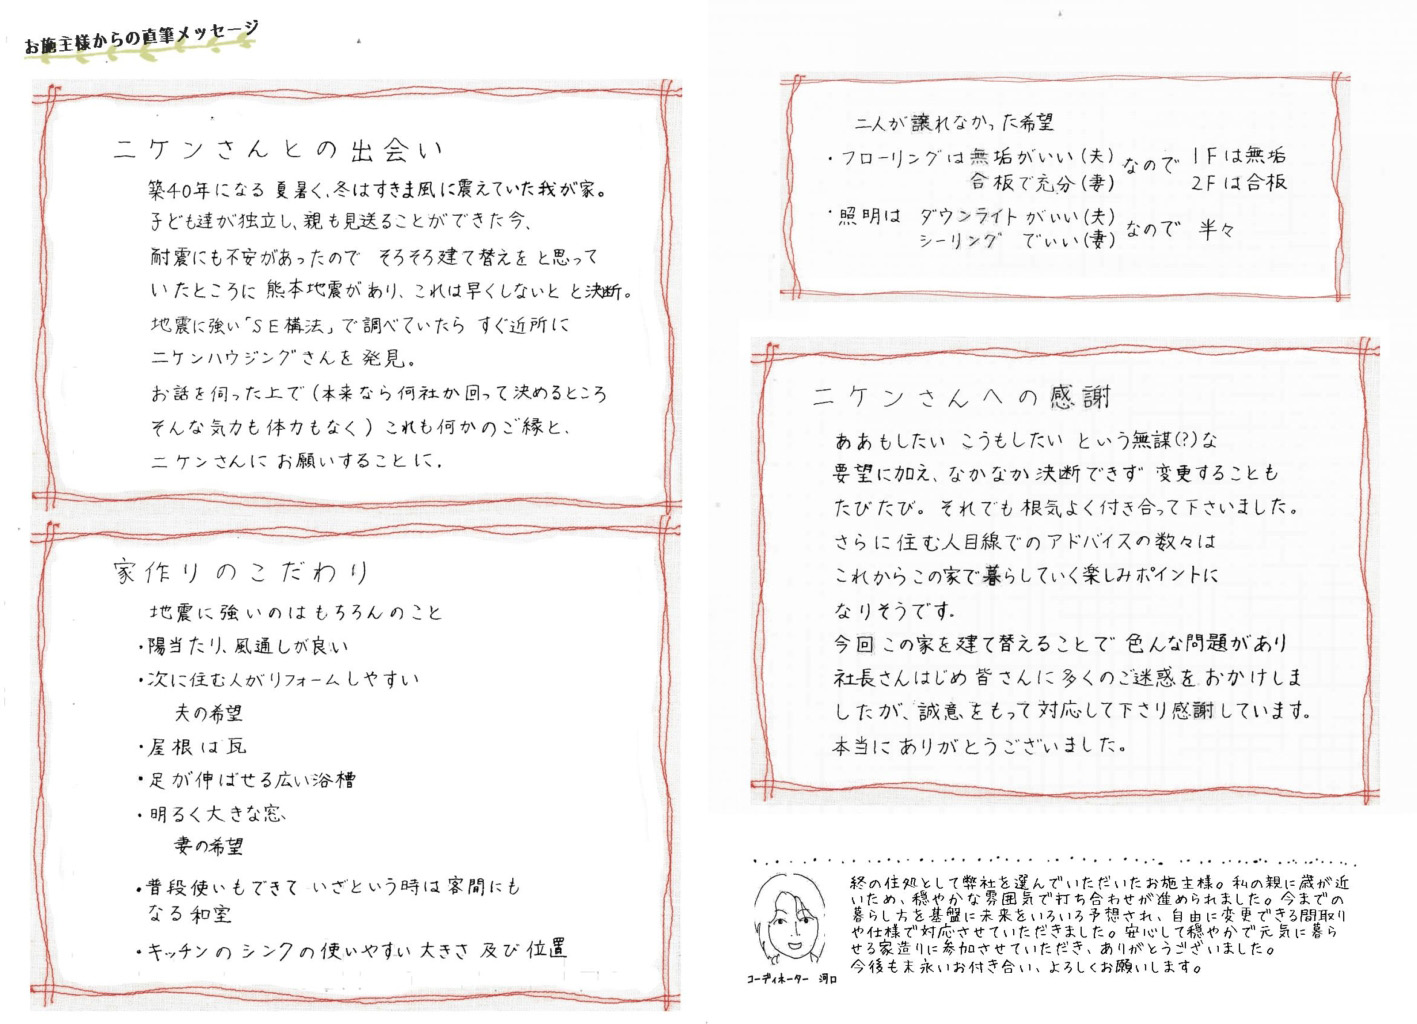 お施主様からの直筆メッセージ
ニケンさんとの出会い
築40年になる 夏暑く、冬はすきま風に震えていた我が家。
子ども達が独立し、親も見送ることができた今、
耐震にも不安があったので そろそろ建て替えを と思って
いたところに 熊本地震があり、これは早くしないと と決断。
地震に強い「SE構法」で調べていたら すぐ近所に
ニケンハウジングさんを 発見。
お話を伺った上で(本来なら何社か回って決めるところ
そんな気力も体力もなく) これも何かのご縁と、
ニケンさんに お願いすることに.
家作りのこだわり
地震に強いのはもちろんのこと
・陽当たり、風通しが良い
・次に住む人がリフォームしやすい
夫の希望
・屋根は瓦
・足が伸ばせる広い浴槽
・明るく大きな窓、
妻の希望
・普段使いもできて いざという時は客間にも
なる和室
・キッチンのシンクの使いやすい大きさ及び位置
二人が譲れなかった希望
・フローリングは無垢がいい(夫) なので 1Fは無垢
合板で充分(妻) 2Fは合板
・照明は ダウンライトがいい(夫) なので 半々
シーリング でいい(妻)
ニケンさんへの感謝
ああもしたい こうもしたい という無謀(?)な
要望に加え、なかなか決断できず 変更することも
たびたび。それでも根気よく付き合って下さいました。
さらに住む人目線でのアドバイスの数々は
これからこの家で暮らしていく楽しみポイントに
なりそうです.
今回この家を建て替えることで 色んな問題があり
社長さんはじめ皆さんに多くのご迷惑をおかけしま
したが、誠意をもって対応して下さり感謝しています。
本当にありがとうございました。
終の住処として弊社を選んでいただいたお施主様。私の親に歳が近
いため、穏やかな雰囲気で打ち合わせが進められました。今までの
暮らし方を基盤に未来をいろいろ予想され、自由に変更できる間取り
や仕様で対応させていただきました。安心して穏やかで元気に暮ら
せる家造りに参加させていただき、ありがとうございました。
今後も末永いお付き合い、よろしくお願いします。
コーディネーター 河口